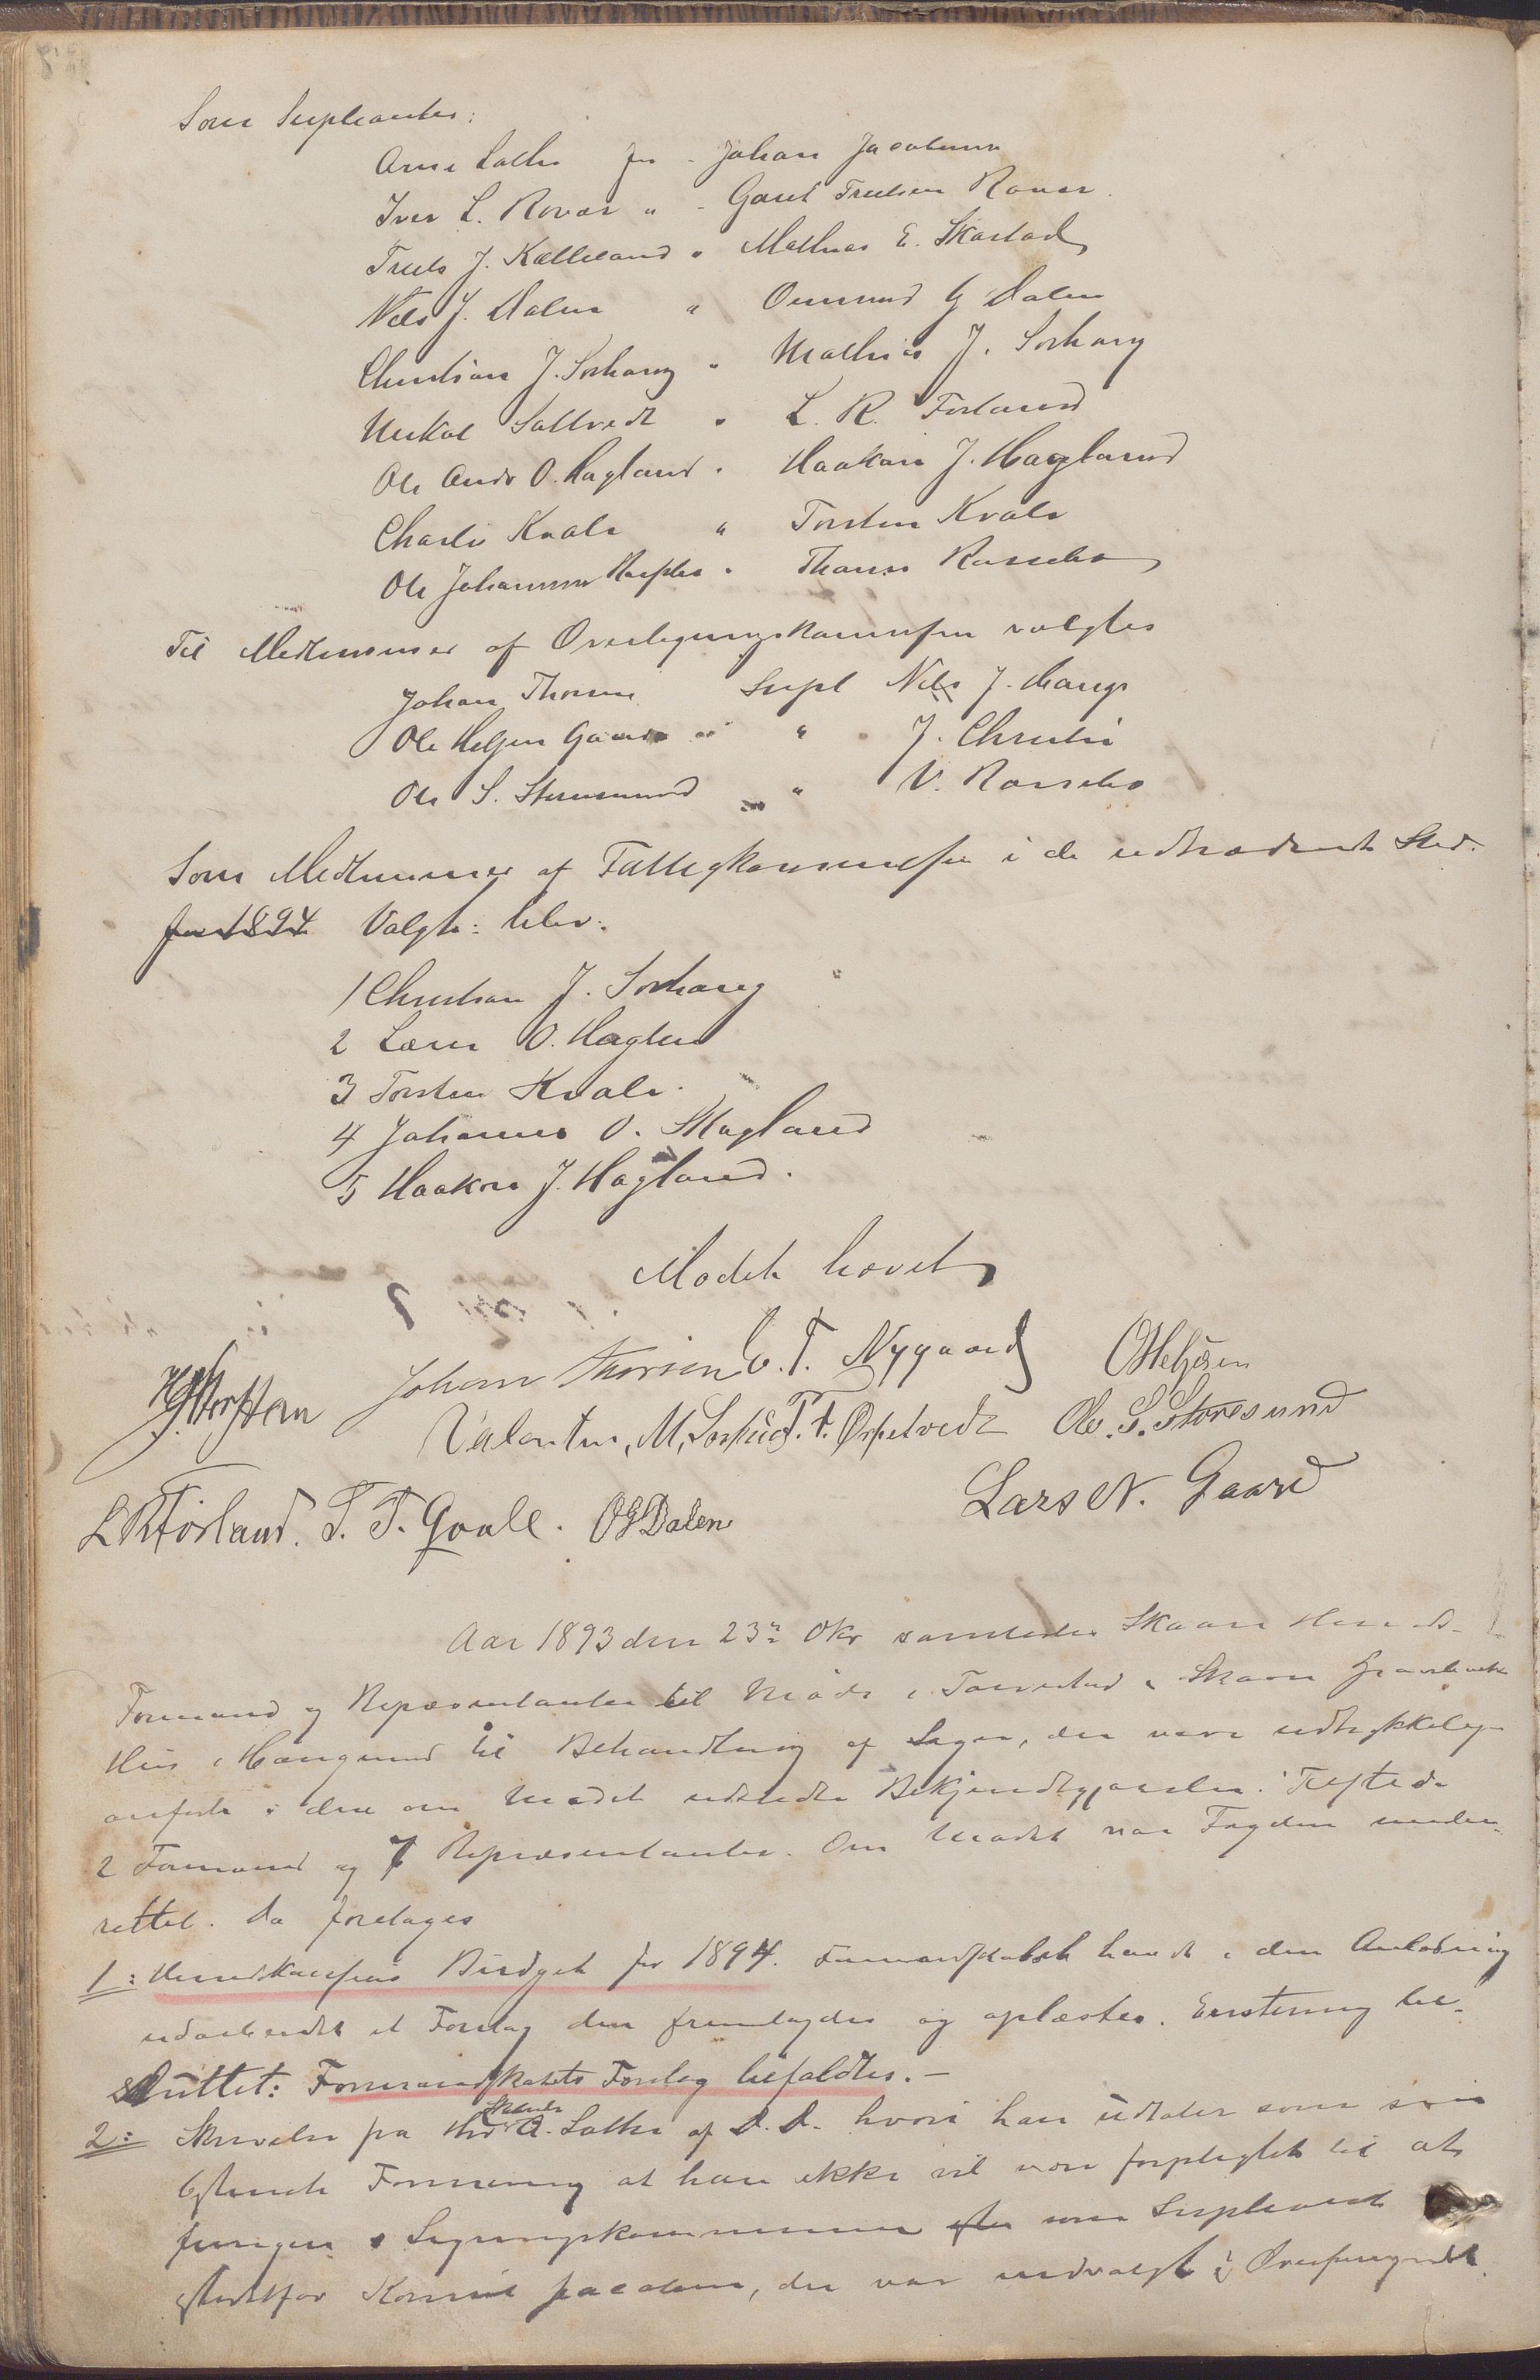 Som Supleanter:
Arne Lothe for - Johan Jacobsen
Iver L. Rovær " - Gaut Truelsen Rovær.
Truls J. Kalleland " Mathias E. Skarstad
Nels J. Dalen " Ommund G Dalen
Christian J. Sørhaug " Mathias J. Sørhaug
Mikal Saltvedt " L. R. Førland
Ole Ands O. Hagland " Haakon J. Hagland
Charles Kvale " Torsten Kvale
Ole Johannesen " Thomas Rossebø
Til Medlemmer af Overligningskommisen valgtes
Johan Thorsen Supl Nils J. Hauge
Ole Helgesen Gaard " J. Christie
Ole S. Storesund " V. Rossebø
Som Medlemmer af Fattigkommissen i de udtrædende Sted.
for 1894 Valgte: blev:
1 Christian J. Sørhaug
2 Lars O. Hagland
3 Torsten Kvale.
4 Johannes O. Skagland
5 Haakon J. Hagland.
Mødet hævet
Johan Thorsen G. T. Nygaard O Helgesen
Valentin, M, Sørhaug T. T. Ørpetvedt Ole. S. Storesund
L R Førland. T. T. Qvale. O G Dalen Lars N. Gaard
Aar 1893 den 23de Okr samledes Skaare Herreds
Formænd og Repræsentanter til Møde i Torvestad & Skaare Sparebanks
Hus i Haugesund til Behandling af Sager, der vare udtrykkelig
anførte i den om Mødet udstedte Bekjendtgjørelse. Tilstede
2 Formænd og 7 Repræsentanter. Om Mødet var Fogden under-
rettet. Da foretages
1: Herredkassens Budget for 1894. Formandskabet havde i den Anledning
udarbeidet et Forslag der fremlagdes og oplæstes. Enstemmig be-
sluttet: Formandskabets Forslag bifaldtes. -
2: Skrivelse fra Hr Skræder A. Lothe af D. D. hvori han udtaler som sin
bestemte Formening at han ikke vil være forpligtet til at
fungere i Ligningskommissionen efter som Supleant
istedetfor Konsul Jacobsen, der var indvalgt i Overformynderiet.